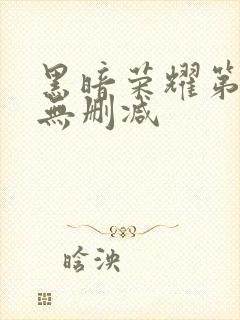 黑暗荣耀第
無删减
晗泱